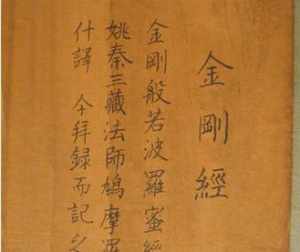 金剛經
金剛般若波羅蜜經
姚秦三藏法師鳩摩羅
什譯 今拜録而記之